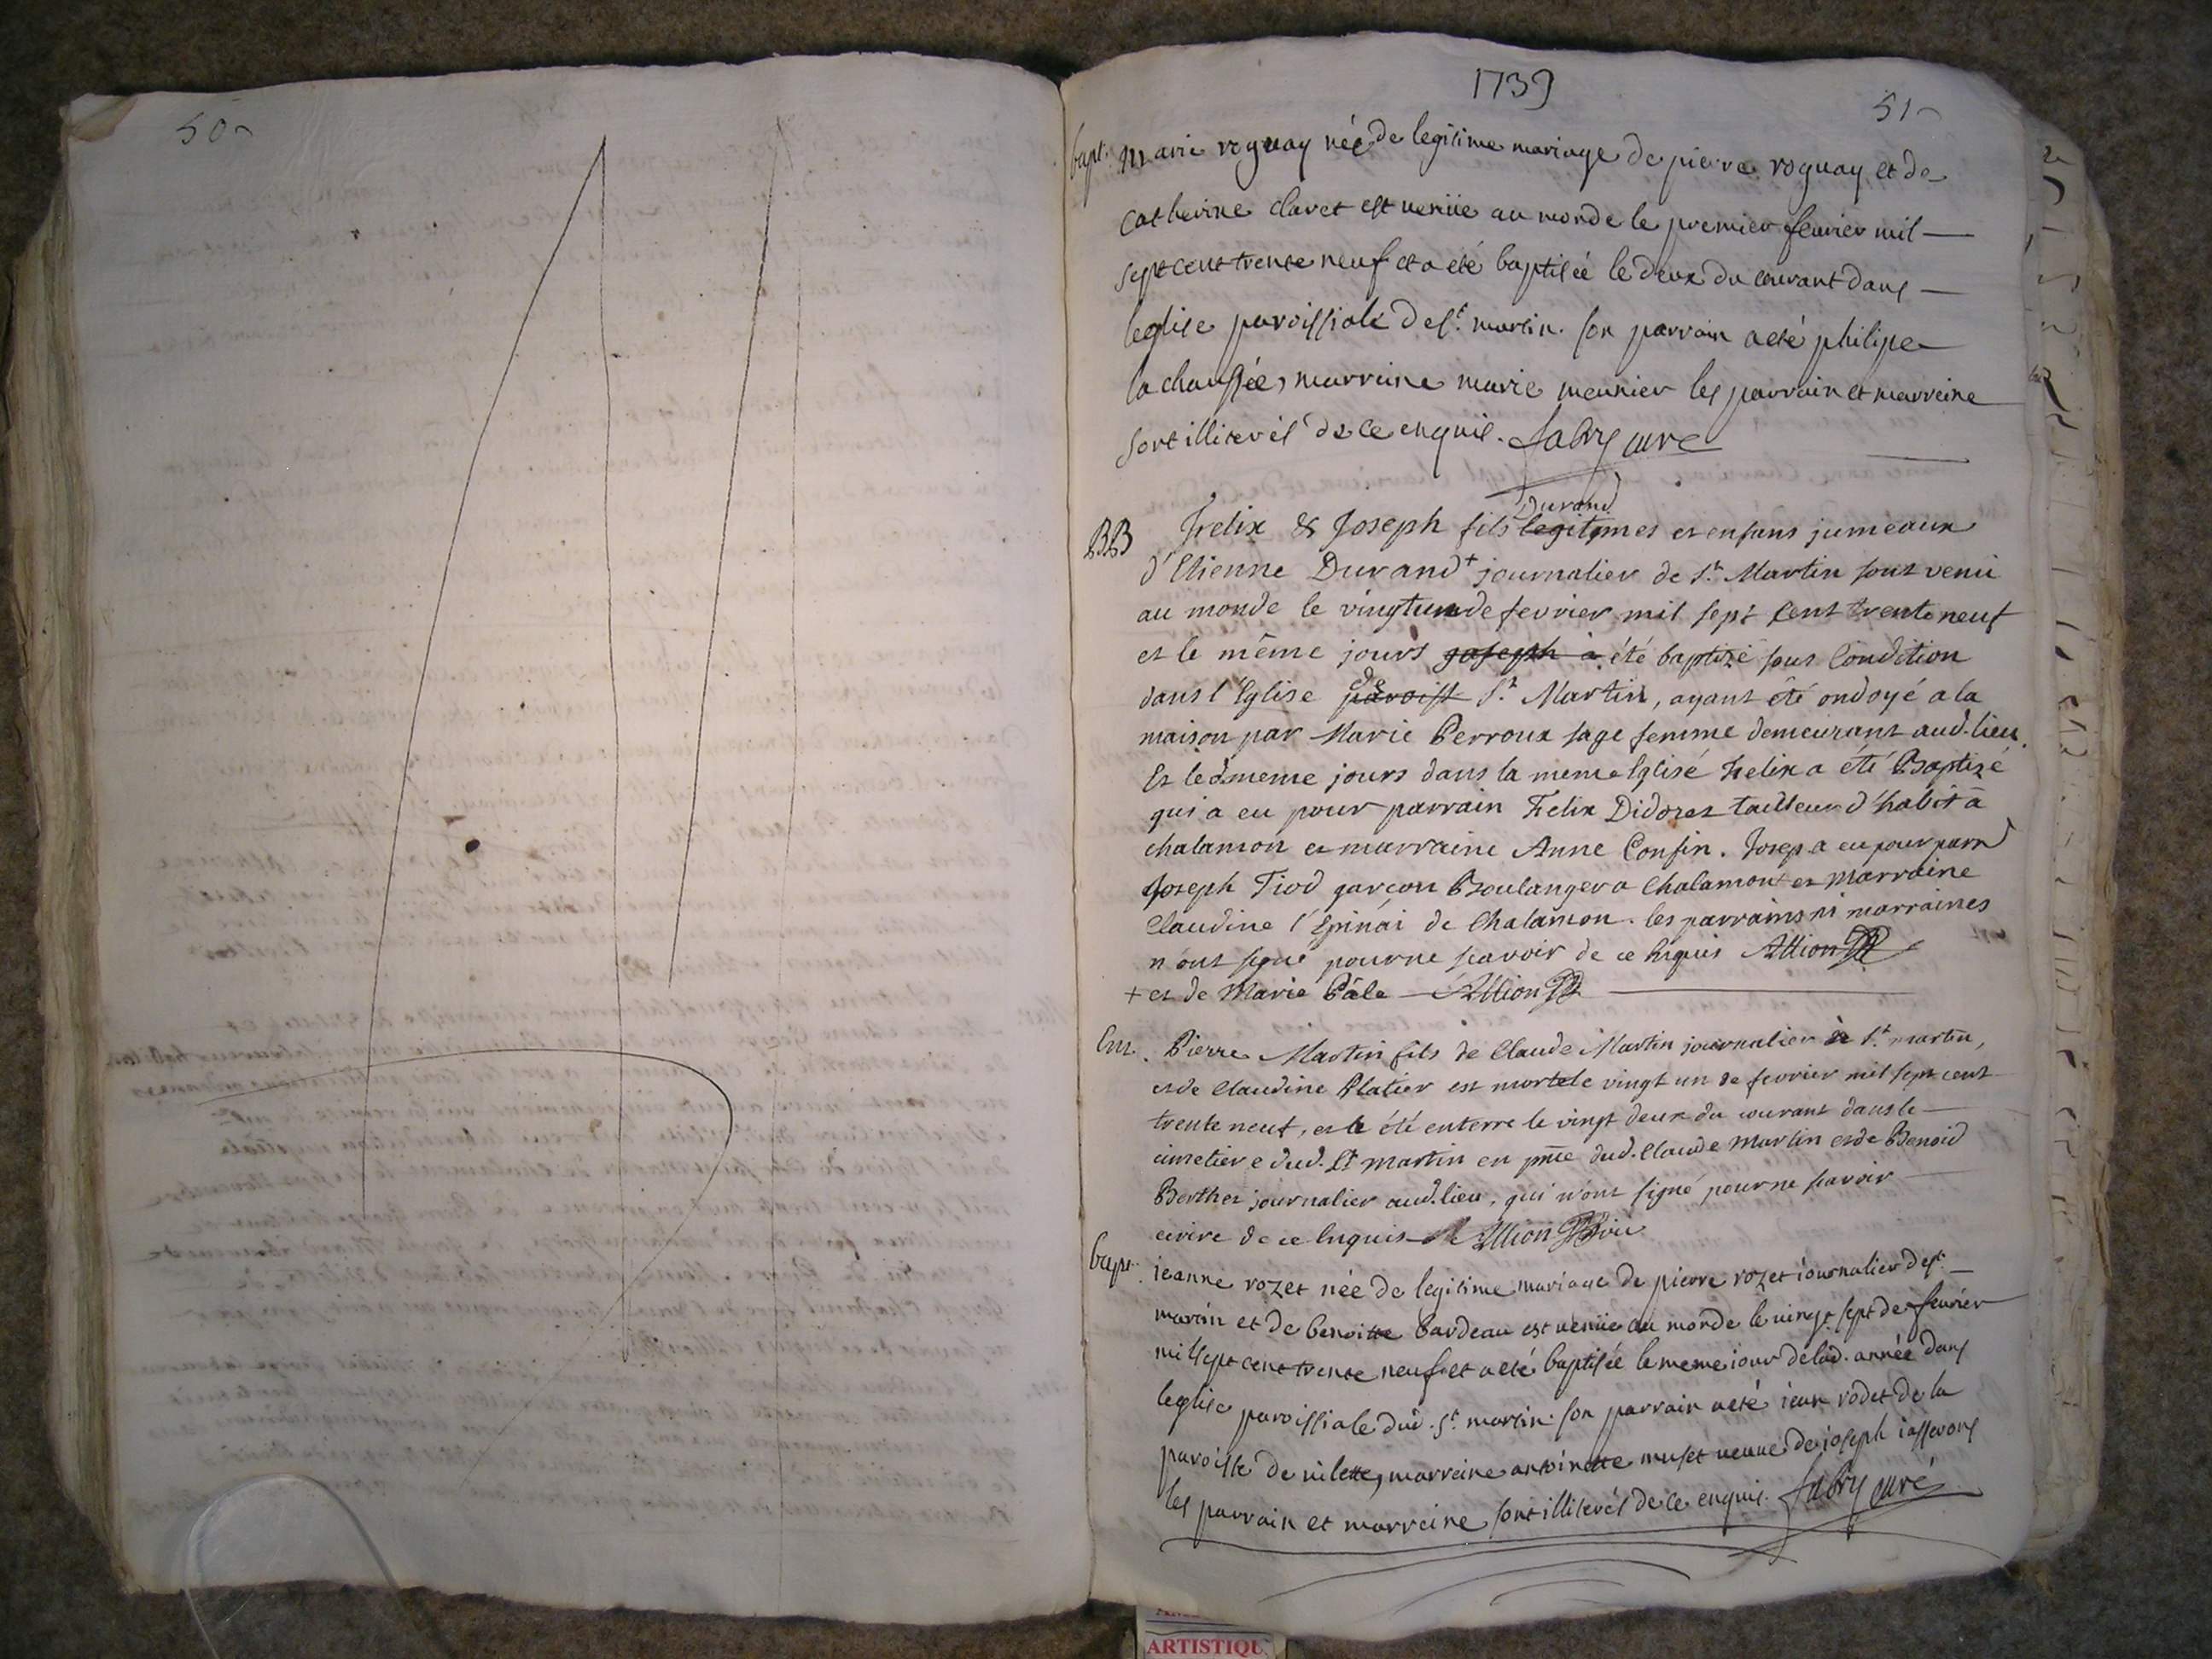 50
1739
51
bapt. Marie roguay née de legitime mariage de pierre roguay et de
catherine claret est venüe au monde le premier feurier mil
sept cent trente neuf et a eté baptisée le deux du courant dans
leglise paroissiale de st. martin. son parrain a eté philipe
la chaussée, marraine marie meunier les parrain et marreine
sont illiterés de ce enquis. fabry curé
Durand
BB Felix & Joseph fils legitimes et enfans jumeaux
d'Etienne Durand + journalier de st. Martin sont venu
au monde le vingtun de fevrier mil sept cent trente neuf
et le même jours joseph a été baptizé sous Condition
de
dans l'Eglise paroiss st. Martin, ayant été ondoyé a la
maison par Marie Perroux sage femme demeurant aud. lieu.
Et led meme jours dans la meme Eglise Felix a été Baptizé
qui a eu pour parrain Felix Didoret tailleur d'habit a
chalamon et marraine Anne Confin. Josep a eu pour parrd
Joseph Tiod garçon Boulanger a Chalamont et Marraine
Claudine l'Epinai de Chalamon. les parrains ni marraines
n'ont signé pour ne scavoir de ce Enquis Allion
+ et de Marie Pâle Allion
Ent. Pierre Martin fils de Claude Martin journalier à st. martin,
et de Claudine Platier est mort le vingt un de fevrier mil sept cent
trente neuf, et a été enterre le vingt deux du courant dans le
cimetiere dud. st martin en pnce dud. Claude Martin et de Benoid
Berthet journalier aud. lieu, qui n'ont signé pour ne scavoir
ecrire de ce Enquis Allion
bapt. ieanne rozet née de legitime mariage de pierre rozet iournalier de st.
martin et de benoitte bardeau est venüe au monde le vingt sept de feurier
mil sept cent trente neuf et a eté baptisée le meme iour de lad. année dans
leglise paroissiale dud. st. martin. son parrain a eté iean rodet de la
paroisse de vilette, marreine antoinette muset veuve de ioseph iasserons
les parrain et marreine sont illiterés de ce enquis. fabry curé
ARTISTIQU